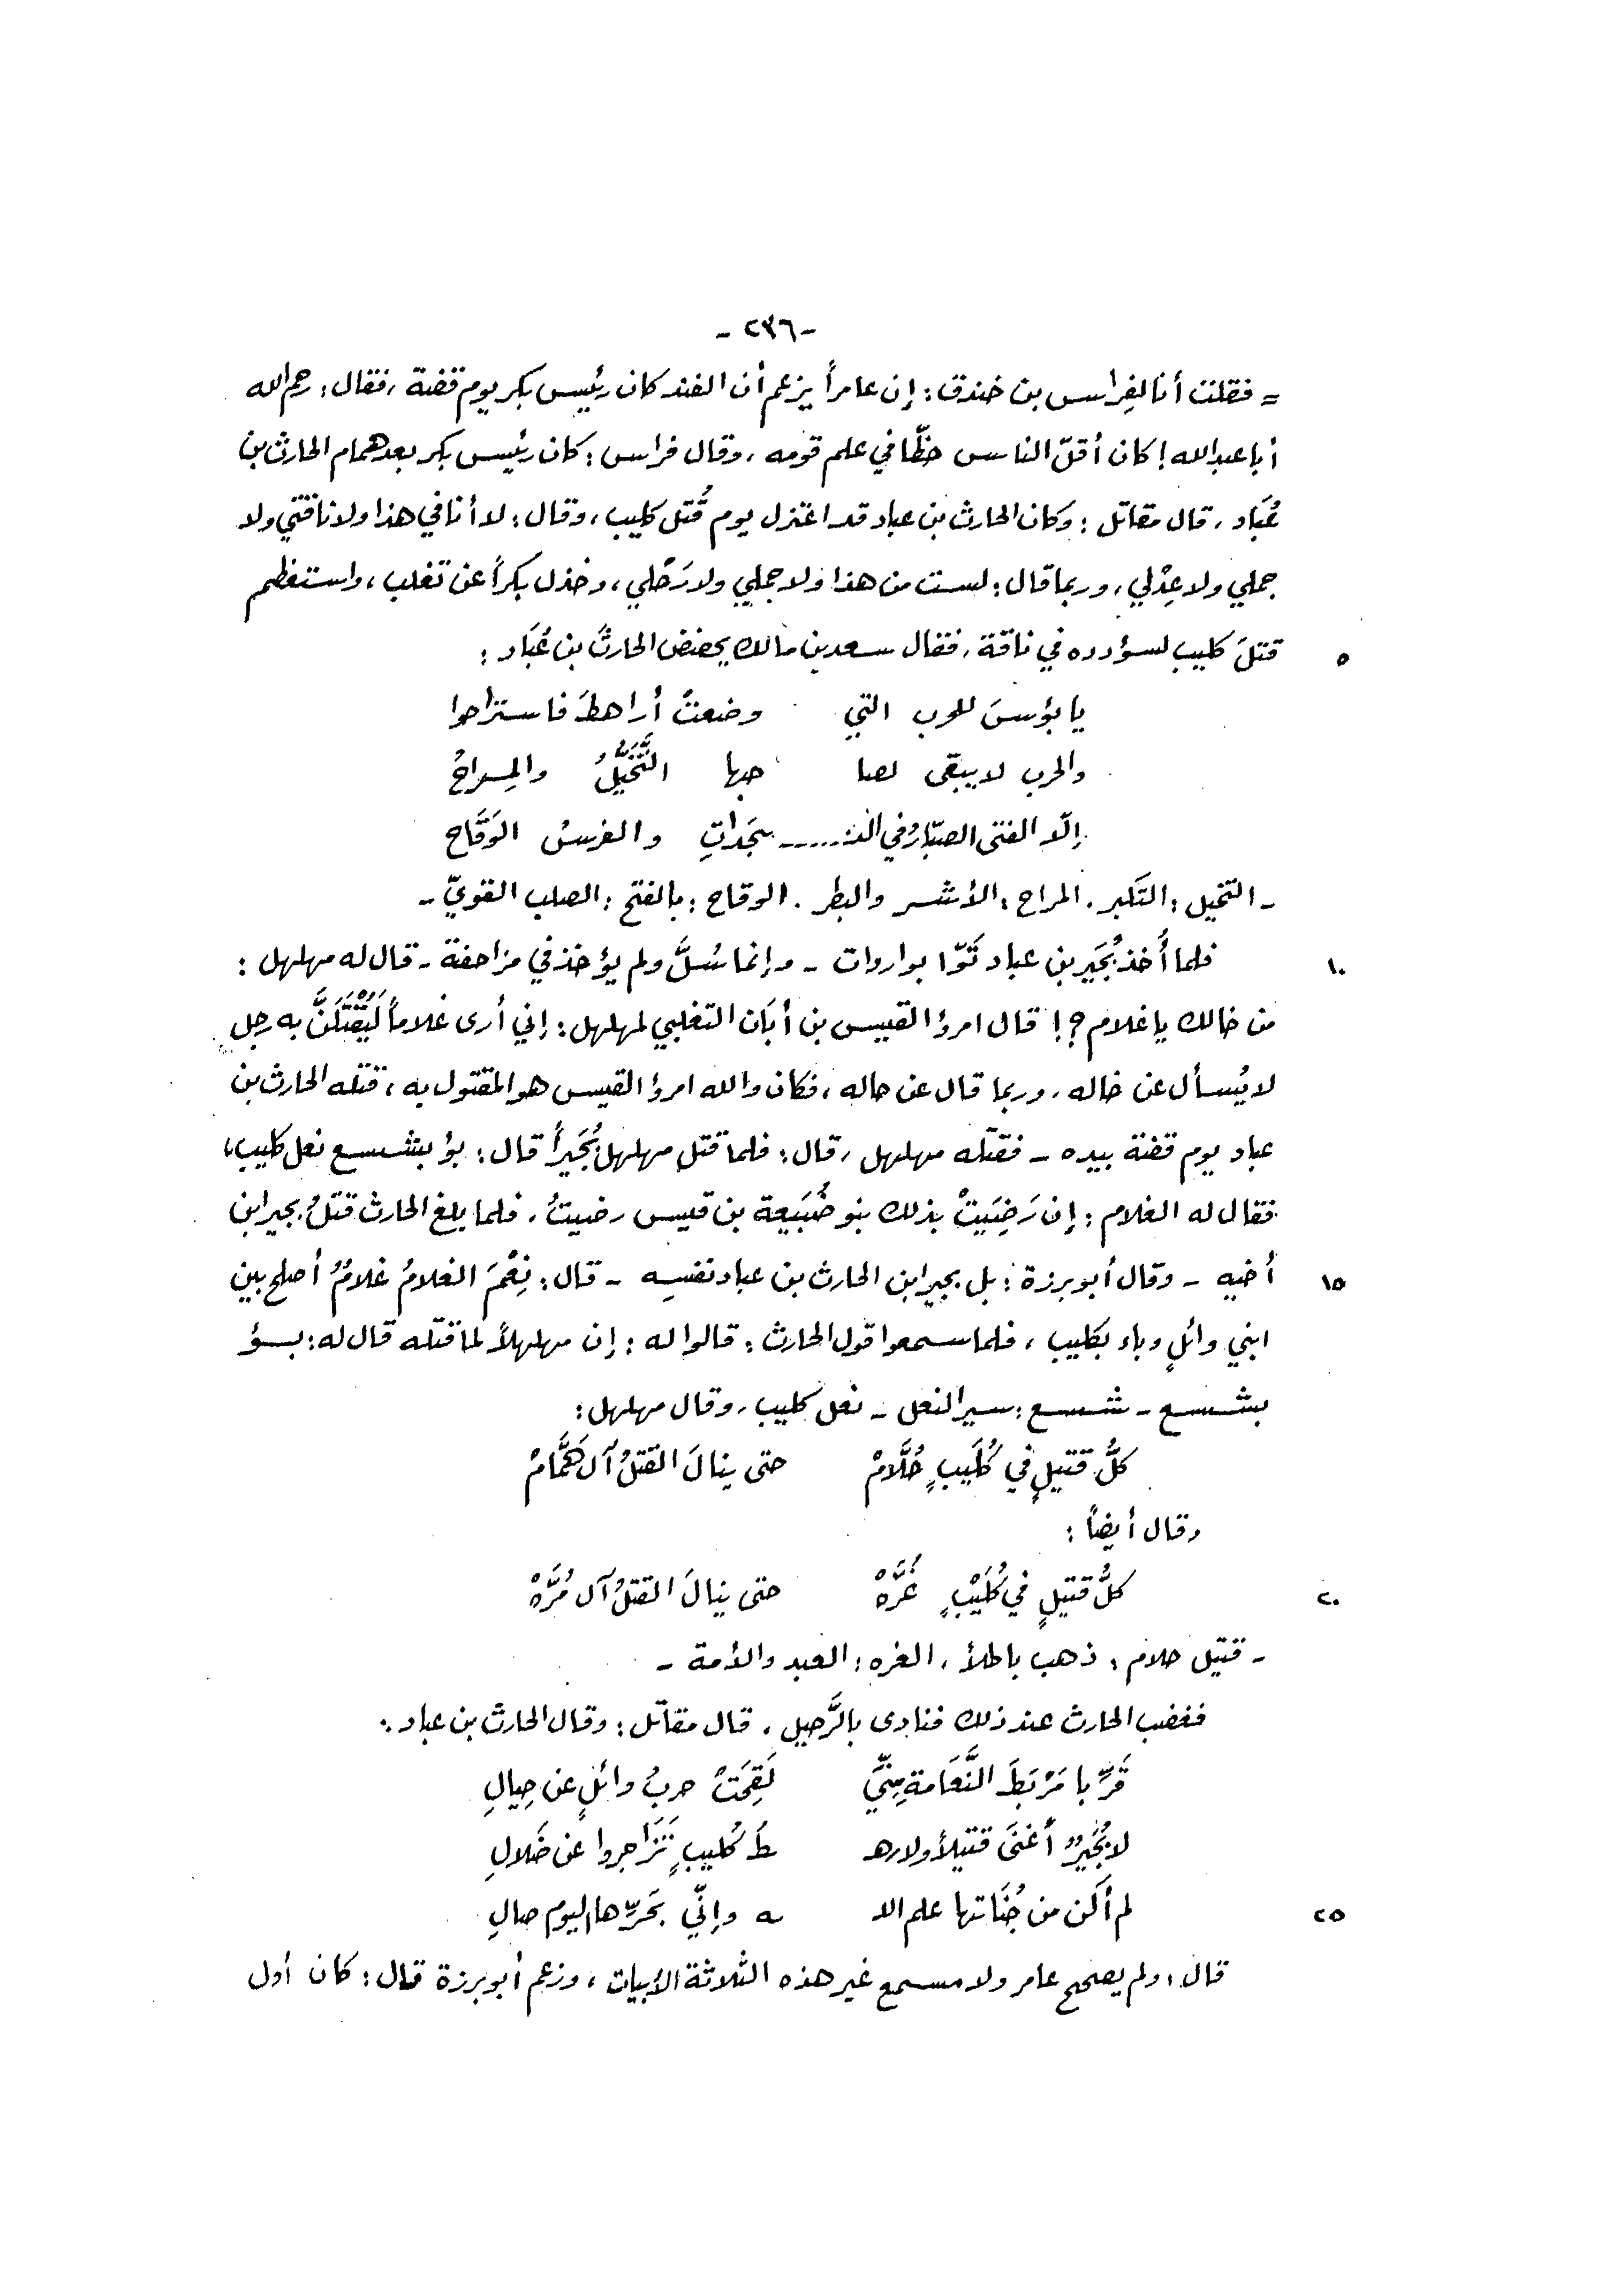 - ٢٣٦ -
= فقلت أنا لفِراس بن خندق : إن عامراً يزعم أن الفند كان رئيس بكر يوم قضة ، فقال : رحم الله
أبا عبد الله ! كان أقلّ الناس حظّا في علم قومه ، وقال فراس : كان رئيس بكر بعد همام الحارث بن
عُبَاد ، قال مقاتل : وكان الحارث بن عباد قد اعتزل يوم قُتل كليب ، وقال : لا أنا في هذا ولا ناقتي ولا
جملي ولا عِدْلي ، وربما قال : لست من هذا ولا جملي ولا رَحْلي ، وخذل بكراً عن تغلب ، واستعظم
٥ قتلَ كليب لسؤدده في ناقة ، فقال سعد بن مالك يحضض الحارثَ بن عُبَاد :
يا بؤسَ للحرب التي وضعتْ أراهطَ فاستراحوا
والحرب لا يبقى لصا حبها التَّخَيُّلُ والمِراحُ
إلّا الفتى الصبّارُ في النـ ..... ـجَدَاتِ والفرسُ الوَقَّاح
- التخيل : التكبر . المراح : الأشر والبطر . الوقاح : بالفتح : الصلب القويّ -
١٠ فلما أُخذ بُجَير بن عباد تَوّا بواردات - وإنما سُلَّ ولم يؤخذ في مزاحفة - قال له مهلهل :
من خالك يا غلام ؟! قال امرؤ القيس بن أبَان التغلبي لمهلهل : إني أرى غلاماً لَيُقْتَلَنَّ به رجل
لا يُسأل عن خاله ، وربما قال عن حاله ، فكان والله امرؤ القيس هو المقتول به ، قتله الحارث بن
عباد يوم قضة بيده - فقتله مهلهل ، قال : فلما قتل مهلهل بُجَيراً قال : بؤ بشسع نعل كليب ،
فقال له الغلام : إن رَضِيَتْ بذلك بنو ضُبَيعة بن قيس رضيتُ ، فلما بلغ الحارث قتلُ بجير ابن
١٥ أخيه - وقال أبو برزة : بل بجير ابن الحارث بن عباد نفسِه - قال : نِعْمَ الغلامُ غلامٌ أصلح بين
ابني وائلٍ وباء بكليب ، فلما سمعوا قول الحارث : قالوا له : إن مهلهلاً لما قتله قال له : بـؤ
بشسع - شسع : سير النعل - نعل كليب ، وقال مهلهل :
كلُّ قتيلٍ في كُلَيبٍ حُلَّامْ حتى ينالَ القتلُ آل هَمَّامْ
وقال أيضاً :
٢٠ كلُّ قتيلٍ في كُلَيْبٍ غُرَّهْ حتى ينالَ القتلُ آل مُرَّهْ
- قتيل حلام : ذهب باطلاً ، الغره : العبد والأمة -
فغضب الحارث عند ذلك فنادى بالرَّحيل ، قال مقاتل : وقال الحارث بن عباد :
قَرِّبا مَرْبَطَ النَّعَامةِ مِنّي لَقِحَتْ حربُ وائلٍ عن حِيالِ
لا بُجَيرٌ أغنَى قتيلاً ولا رهـ ـطُ كُليبٍ تَزَاجروا عن ضَلالِ
٢٥ لم أكن من جُنَاتها علم اللـ ـه وإنّي بحَرِّها اليوم صالِ
قال : ولم يصحح عامر ولا مسمع غير هذه الثلاثة الأبيات ، وزعم أبو برزة قال : كان أول